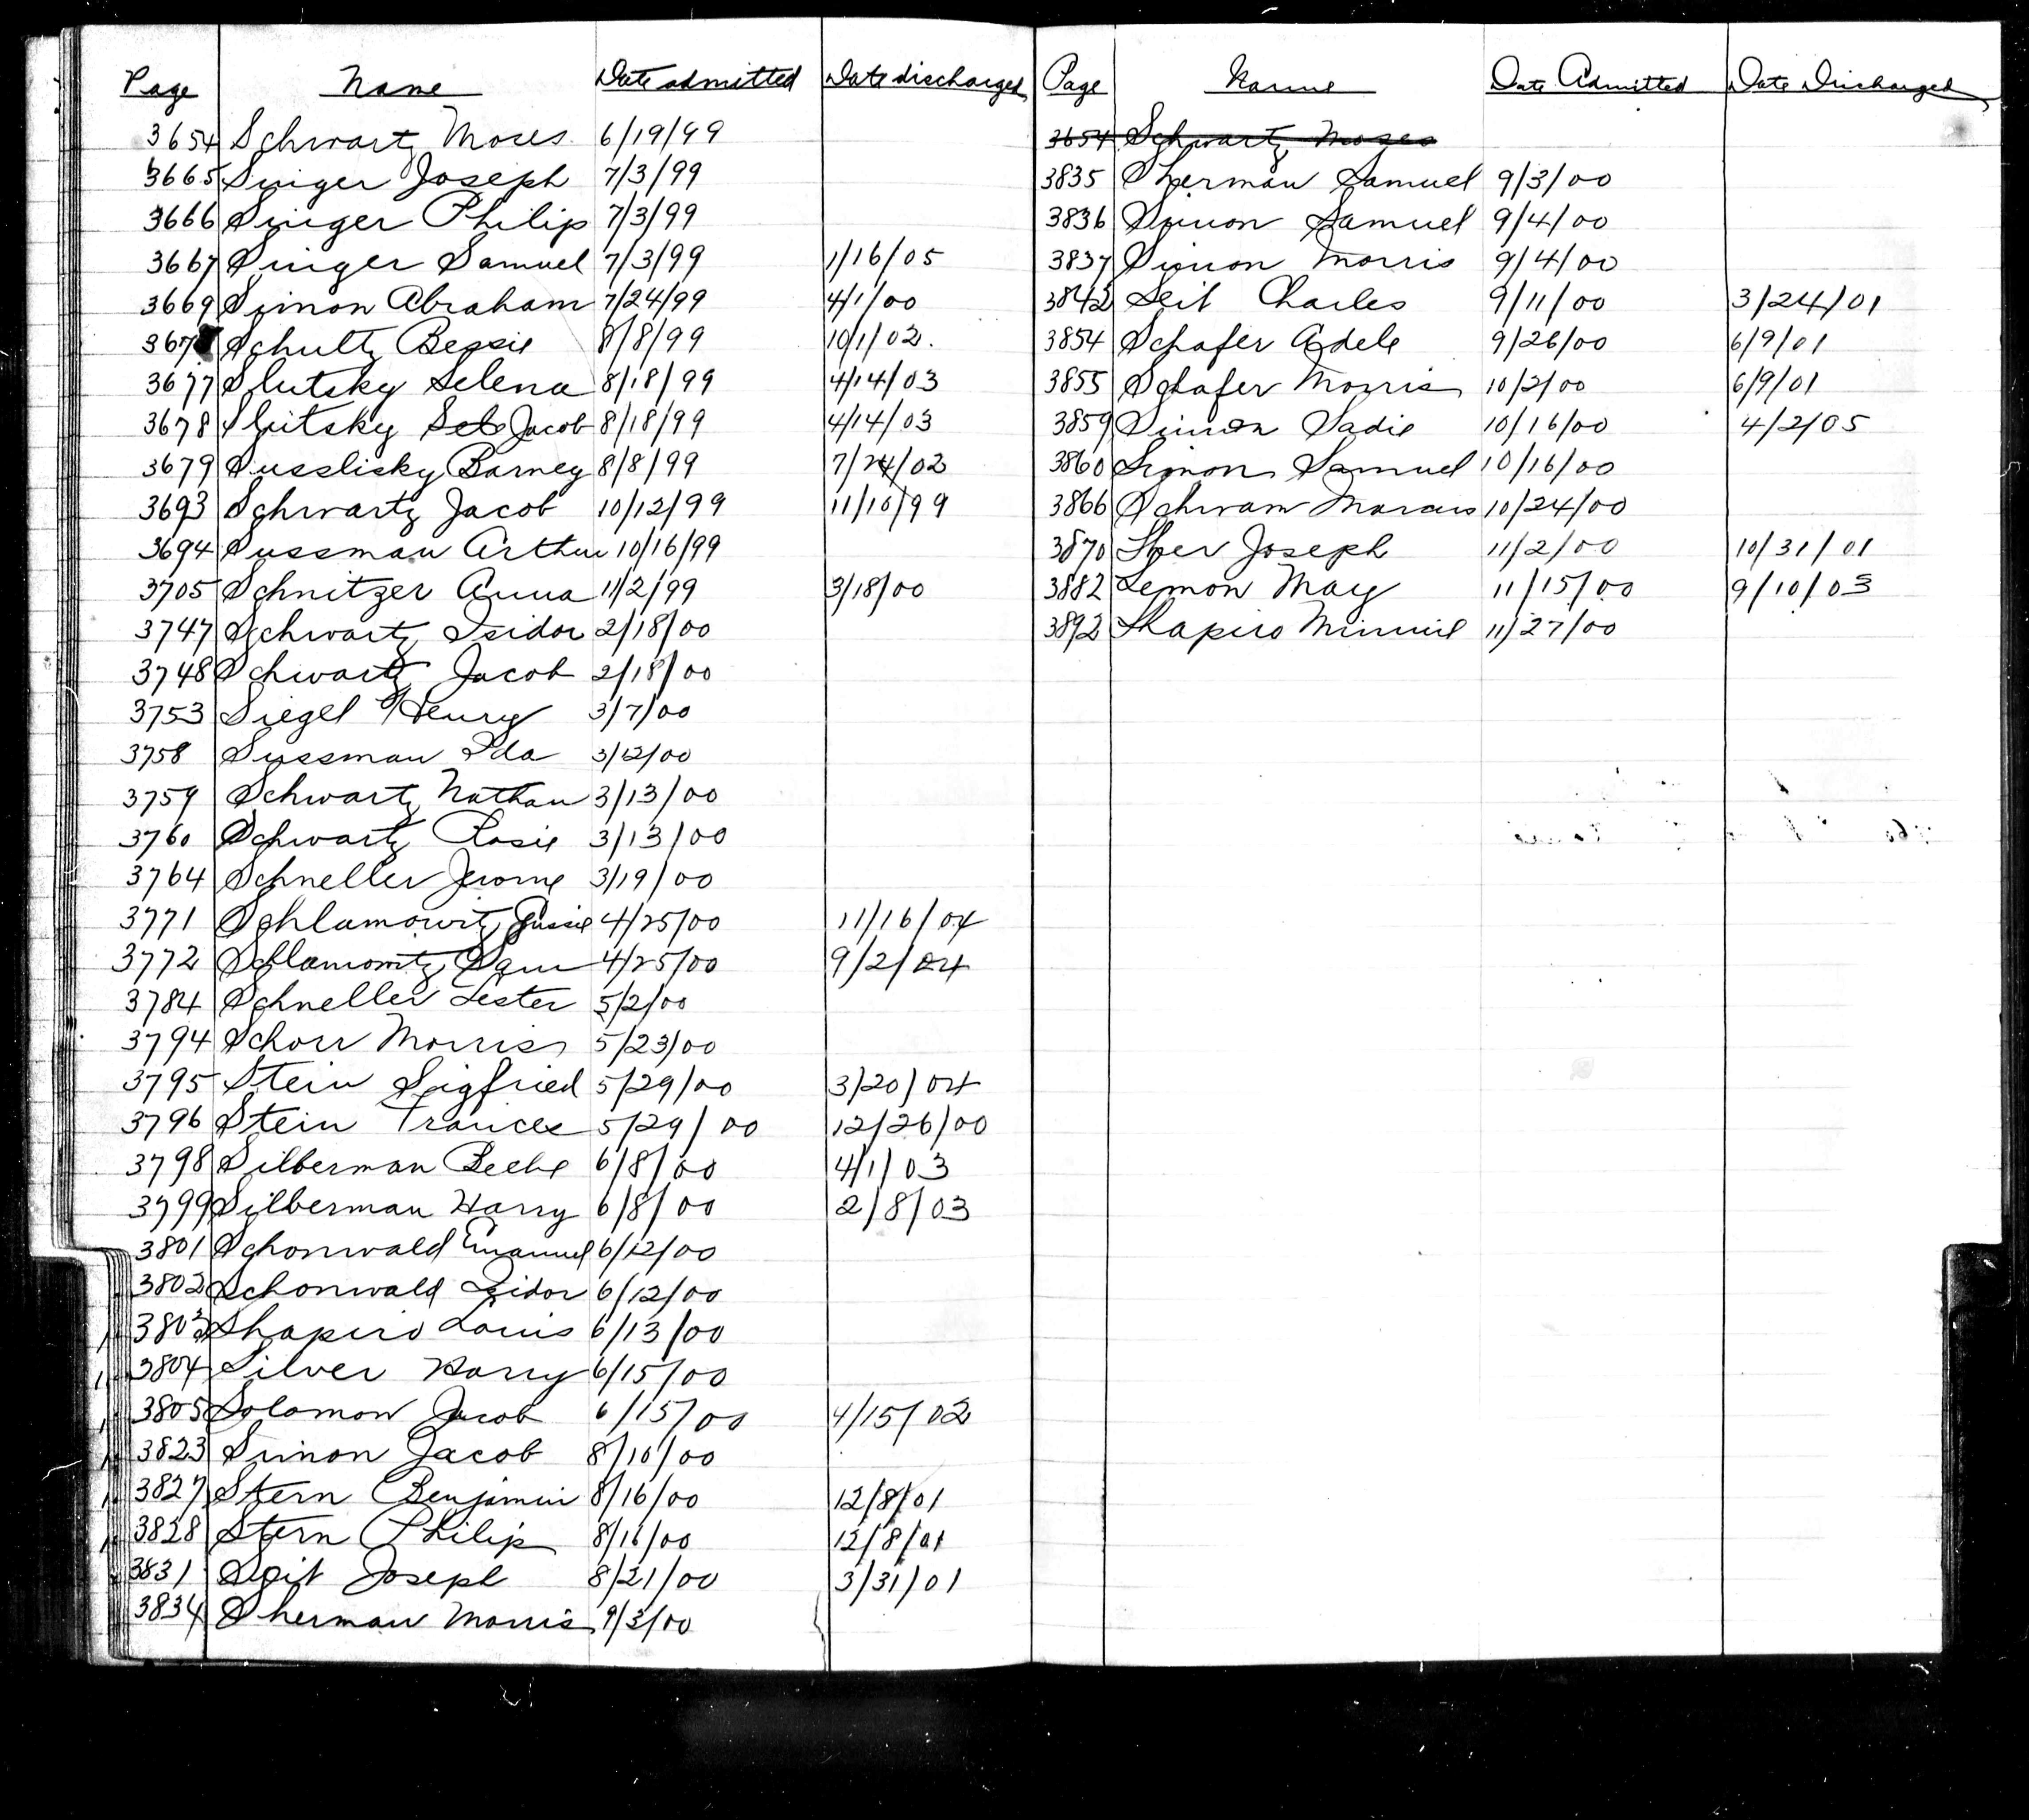 Page Name Date admitted Date discharged
3654 Schwartz Moses 6/19/99
3665 Singer Joseph 7/3/99
3666 Singer Philip 7/3/99
3667 Singer Samuel 7/3/99 1/16/05
3669 Simon Abraham 7/24/99 4/1/00
367 Schultz Bessie 8/8/99 10/1/02.
3677 Slutsky Selena 8/18/99 4/14/03
3678 Slutsky Jacob 8/18/99 4/14/03
3679 Susslisky Barney 8/8/99 7/24/02
3693 Schwartz Jacob 10/12/99 11/10/99
3694 Sussman Arthur 10/16/99
3705 Schnitzer Anna 11/2/99 3/18/00
3747 Schwartz Isidor 2/18/00
3748 Schwartz Jacob 2/18/00
3753 Siegel Henry 3/7/00
3758 Sussman Ida 3/12/00
3759 Schwartz Nathan 3/13/00
3760 Schwartz Rosie 3/13/00
3764 Schneller Jerome 3/19/00
3771 Schlamowitz Gussie 4/25/00 11/16/04
3772 Schlamowitz Sam 4/25/00 9/2/04
3784 Schneller Lester 5/2/00
3794 Schorr Morris 5/23/00
3795 Stein Sigfried 5/29/00 3/20/04
3796 Stein Frances 5/29/00 12/26/00
3798 Silberman Beebe 6/8/00 4/1/03
3799 Silberman Harry 6/8/00 2/8/03
3801 Schonwald Emanuel 6/12/00
3802 Schonwald Isidor 6/12/00
3803 Shapiro Louis 6/13/00
3804 Silver Harry 6/15/00
3805 Solomon Jacob 6/15/00 4/15/02
3823 Simon Jacob 8/10/00
3827 Stern Benjamin 8/16/00 12/8/01
3828 Stern Philip 8/16/00 12/8/01
3831 Seit Joseph 8/21/00 3/31/01
3834 Sherman Morris 9/3/00
Page Name Date Admitted Date Discharged
3654 Schwartz Moses
3835 Sherman Samuel 9/3/00
3836 Simon Samuel 9/4/00
3837 Simon Morris 9/4/00
3842 Seit Charles 9/11/00 3/24/01
3854 Schafer Adele 9/26/00 6/9/01
3855 Schafer Morris 10/2/00 6/9/01
3859 Simon Sadie 10/16/00 4/2/05
3860 Simon Samuel 10/16/00
3866 Schwam Marcus 10/24/00
3870 Sher Joseph 11/2/00 10/31/01
3882 Lemon May 11/15/00 9/10/03
3892 Shapiro Minnie 11/27/00